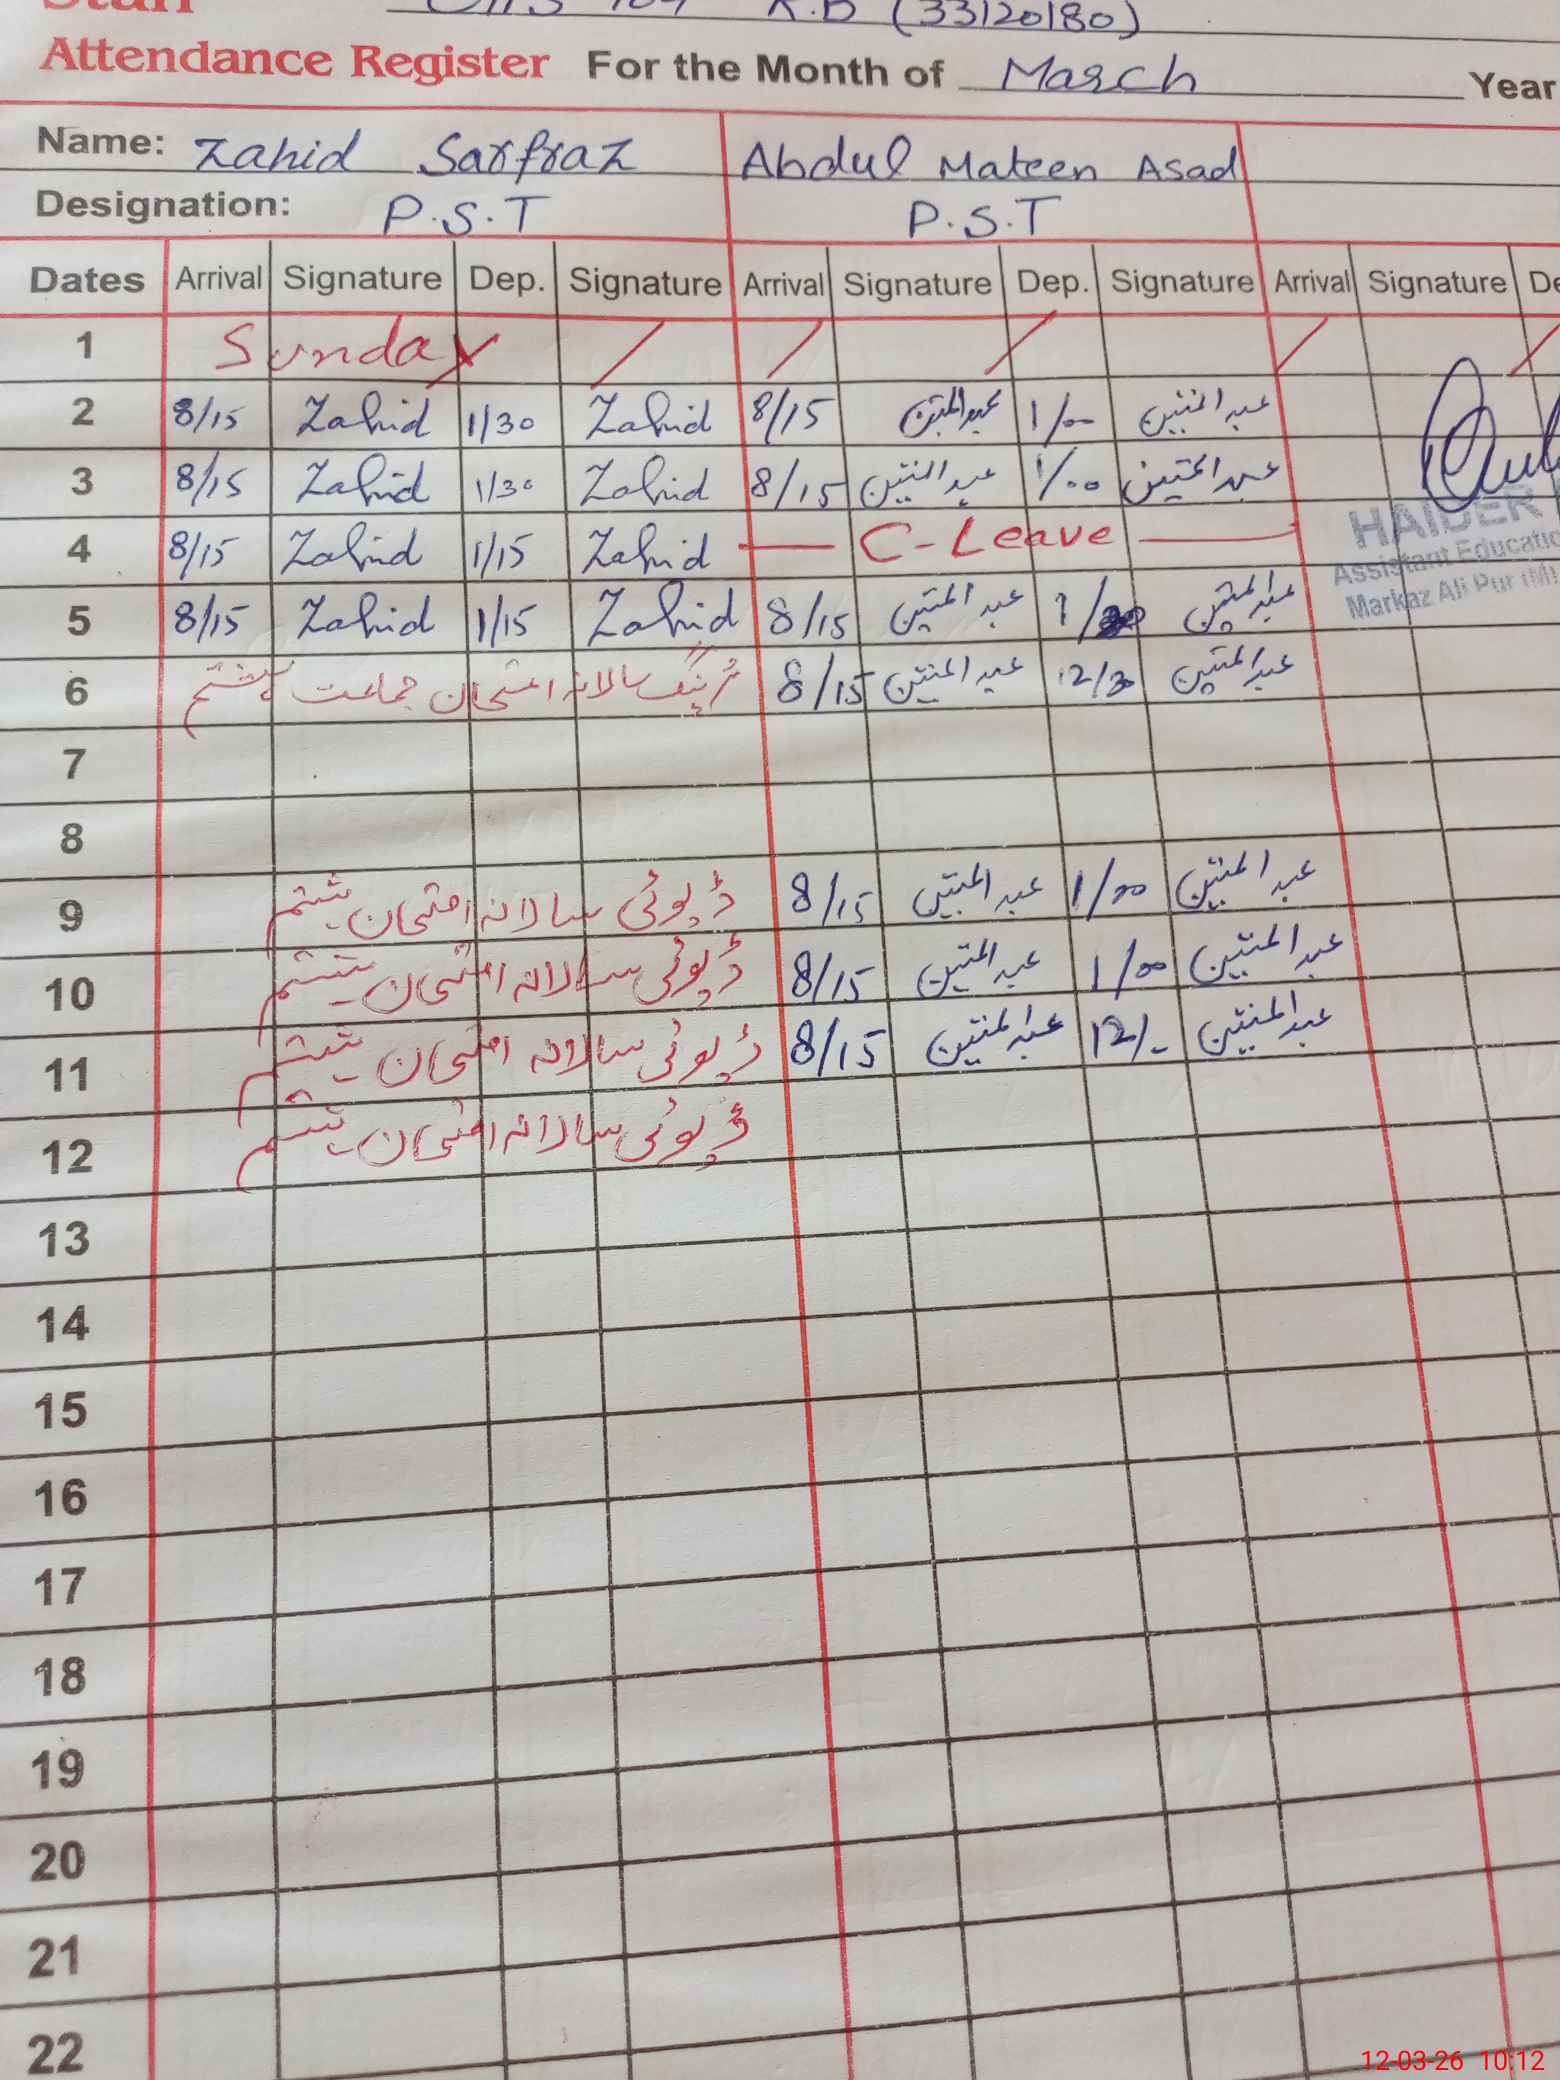 Staff K.B (33120180)
Attendance Register For the Month of March Year
Name: Zahid Sarfraz Abdul Mateen Asad
Designation: P.S.T P.S.T
Dates Arrival Signature Dep. Signature Arrival Signature Dep. Signature Arrival Signature De
1 Sunday / / / / /
2 8/15 Zahid 1/30 Zahid 8/15 عبدالمتین 1/00 عبدالمتین
3 8/15 Zahid 1/30 Zahid 8/15 عبدالمتین 1/00 عبدالمتین
4 8/15 Zahid 1/15 Zahid — C-Leave —
HAIDER
Assistant Educatio
Markaz Ali Pur (M)
5 8/15 Zahid 1/15 Zahid 8/15 عبدالمتین 1/ عبدالمتین
6 ٹریننگ سالانہ امتحان جماعت ہشتم 8/15 عبدالمتین 12/30 عبدالمتین
7
8
9 ڈیوٹی سالانہ امتحان ہشتم 8/15 عبدالمتین 1/00 عبدالمتین
10 ڈیوٹی سالانہ امتحان ہشتم 8/15 عبدالمتین 1/00 عبدالمتین
11 ڈیوٹی سالانہ امتحان ہشتم 8/15 عبدالمتین 12/- عبدالمتین
12 ڈیوٹی سالانہ امتحان ہشتم
13
14
15
16
17
18
19
20
21
22
12-03-26 10:12